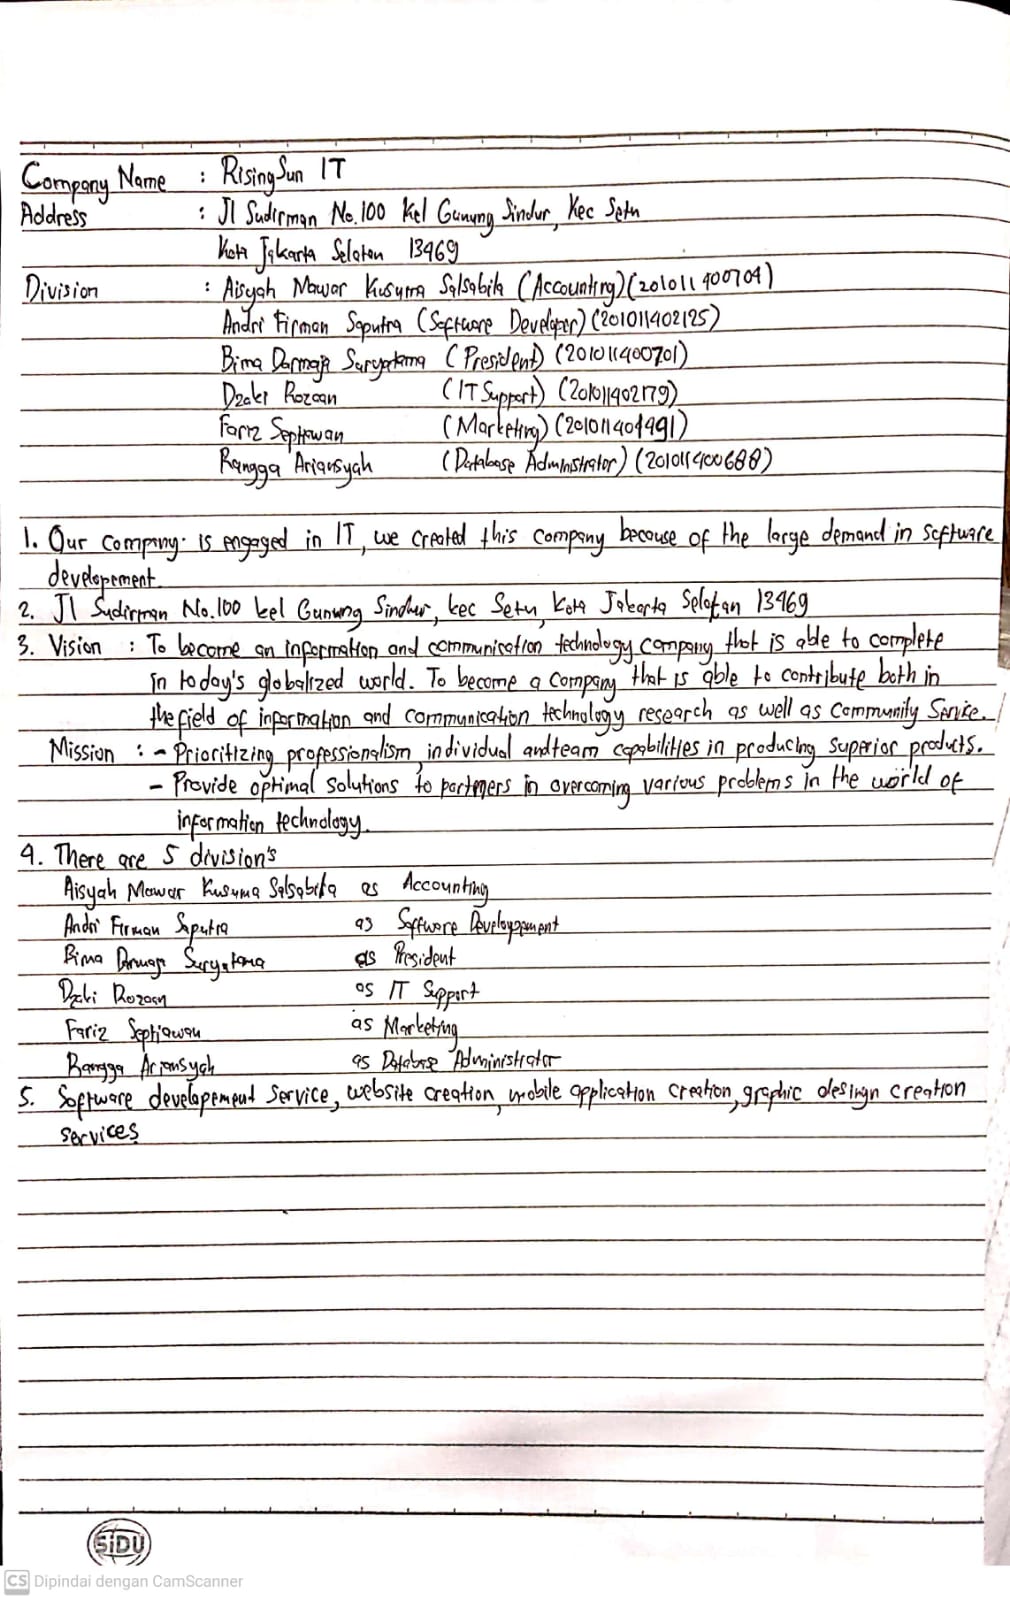 Company Name : RisingSun IT
Address : Jl Sudirman No.100 Kel Gunung Sindur, Kec Setu
Kota Jakarta Selatan 13469
Division : Aisyah Mawar Kusuma Salsabila (Accounting) (201011400704)
Andri Firman Saputra (Software Developer) (201011402125)
Bima Darmaji Suryatama (President) (201011400701)
Dzaki Rozaan (IT Support) (201011402179)
Fariz Septiawan (Marketing) (201011401491)
Rangga Ariansyah (Database Administrator) (201011400688)
1. Our company is engaged in IT, we created this company because of the large demand in software
developement
2. Jl Sudirman No.100 kel Gunung Sindur, kec Setu, Kota Jakarta Selatan 13469
3. Vision : To become an information and communication technology company that is able to complete
in today's globalized world. To become a company that is able to contribute both in
the field of information and communication technology research as well as Community Service.
Mission : - Prioritizing professionalism, individual and team capabilities in producing superior products.
- Provide optimal solutions to partners in overcoming various problems in the world of
information technology.
4. There are 5 division's
Aisyah Mawar Kusuma Salsabila as Accounting
Andri Firman Saputra as Software Developpement
Bima Darmaji Suryatama as President
Dzaki Rozaan as IT Support
Fariz Septiawan as Marketing
Rangga Ariansyah as Database Administrator
5. Software developement Service, website creation, mobile application creation, graphic desingn creation
services
SiDU
CS Dipindai dengan CamScanner